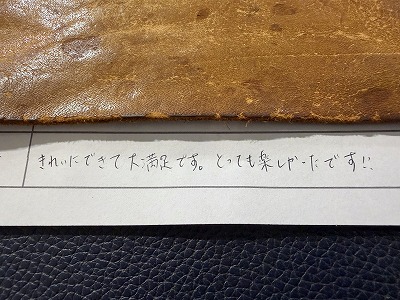 きれいにできて大満足です。とっても楽しかったです!!